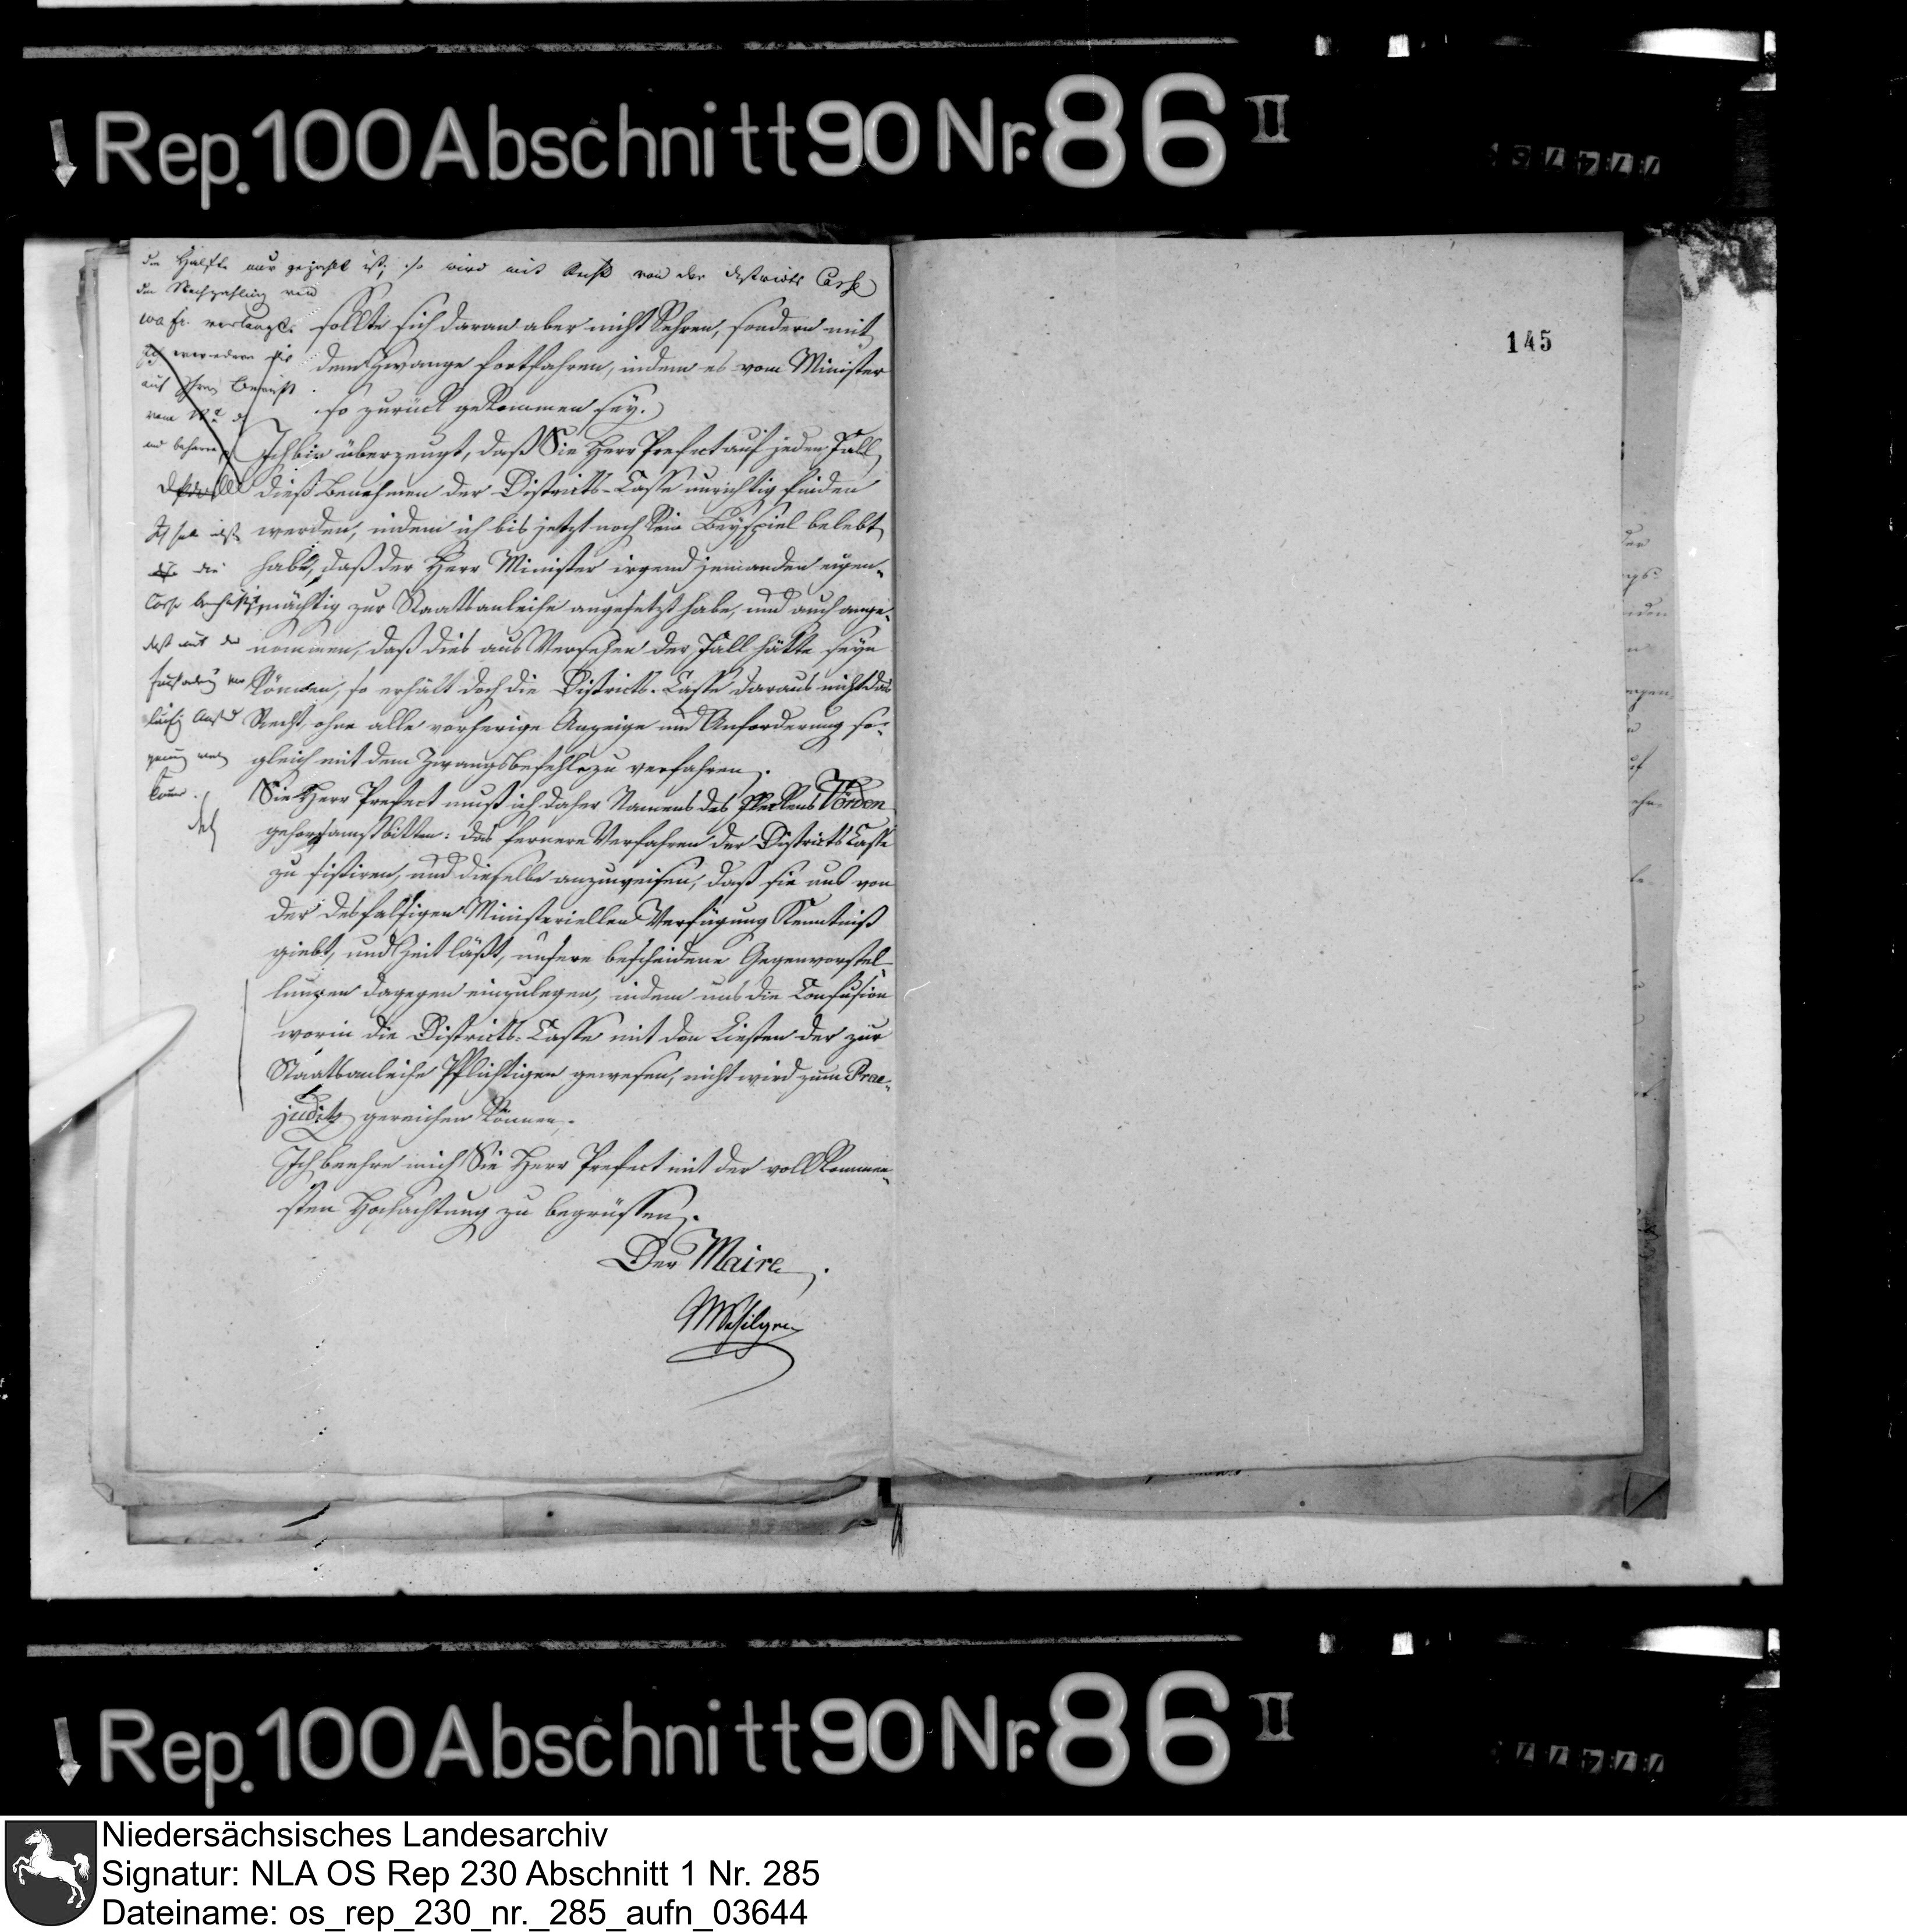 Rep. 100 Abschnitt 90 Nr. 86 II
die Hälfte nur gezahlt ist, so wird mit Recht von der Districts Casse
die Nachzahlung von
fr. verlangt.
auf Ihren Bericht
vom
Ich habe
die
Casse
daß mit der
145
sollte sich daran aber nicht kehren, sondern mit
dem Zwange fortfahren, indem es vom Minister
so zurück gekommen sey.
Ich bin überzeugt, daß Sie Herr Prefect auf jeden Fall
dieß Benehmen der Districts-Casse unrichtig finden
werden, indem ich bis jetzt noch kein Beyspiel belebt
habe, daß der Herr Minister irgend jemanden eigen-
mächtig zur Staatsanleihe angesetzt habe, und auch ange-
nommen, daß dies aus Versehen der Fall hätte seyn
können, so erhält doch die Districts-Casse daraus nicht das
Recht, ohne alle vorherige Anzeige und Anforderung so-
gleich mit dem Zwangsbefehle zu verfahren.
Sie Herr Prefect muß ich daher Namens des Fleckens Vörden
gehorsamst bitten: das fernere Verfahren der Districts Casse
zu sistiren, und dieselbe anzuweisen, daß sie uns von
der desfalsigen Ministeriellen Verfügung Kenntniß
giebt, und Zeit läßt, unsere bescheidene Gegenvorstel-
lungen dagegen einzulegen, indem uns die Confusion
worin die Districts-Casse mit den Listen der zur
Staatsanleihe Pflichtigen gewesen, nicht wird zum Prae-
juditz gereichen können.
Ich beehre mich Sie Herr Prefect mit der vollkommen-
sten Hochachtung zu begrüssen.
Der Maire.
Rep. 100 Abschnitt 90 Nr. 86 II
Niedersächsisches Landesarchiv
Signatur: NLA OS Rep 230 Abschnitt 1 Nr. 285
Dateiname: os_rep_230_nr._285_aufn_03644